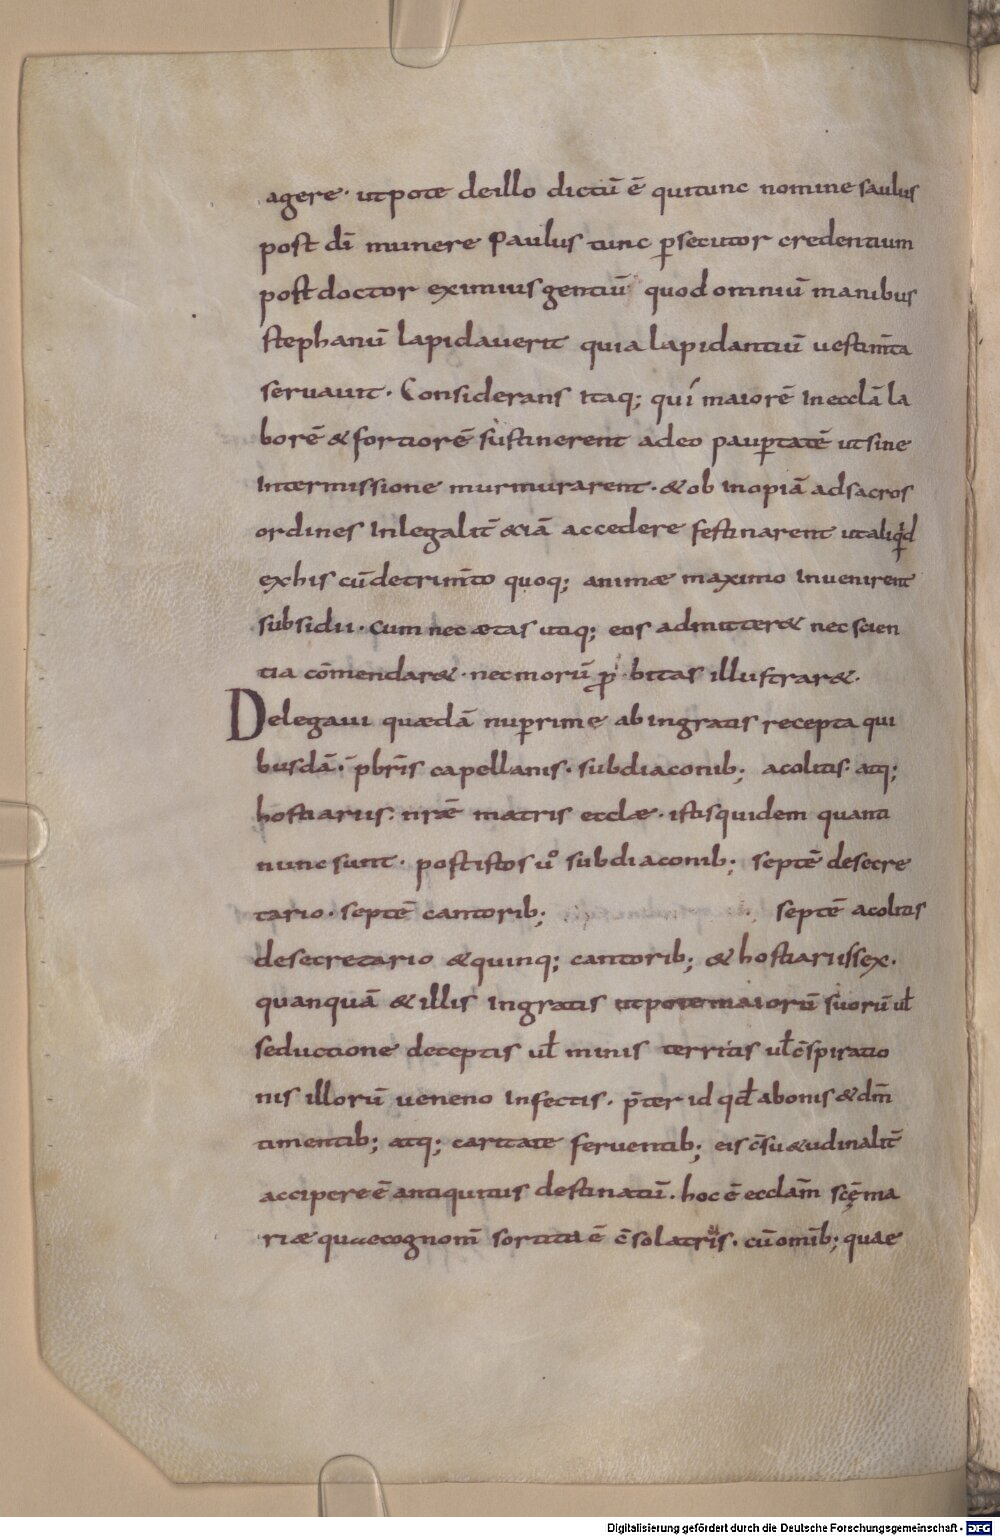 agere · utpote deillo dictū ē quitunc nomine saulus
post dī munere Paulus tunc p̱secutor credentium
post doctor eximius gentiū quod omniū manibus
stephanū lapidauerit quia lapidantiū uestim̄ta
seruauit · Considerans itaq; qui maiorē in eccłā la
borē & fortiorē sustinerent adeo paup̱tatē ut sine
intermissione murmurarent · & ob inopiā ad sacros
ordines inlegalit̄ &iā accedere festinarent ut aliqd
ex his cū detrim̄to quoq; animæ maximo inuenirent
subsidii · cum nec ætas utiq; eos admitter& nec scien
tia cōmendar& · nec morū ꝓbitas illustrar& ·
Delegaui quædā nup̱rime ab ingratis recepta qui
busdā · p̄br̄is capellanis · subdiaconib; acolitis · atq;
hostiariis : nr̄æ matris eccłæ · istis quidem quanti
nunc sunt · post istos ů subdiaconib; septē de secre
tario · septē cantorib; septē acolitis
de secretario & quinq; cantorib; & hostiariis sex ·
quanquā & illis ingratis utpote maiorū suorū uł
seductione deceptis uł minis territis uł c̄spiratio
nis illorū ueneno infectis · p̄ter id qđ a bonis & dm̄
timentib; atq; caritate feruentib; eis c̄su&udinalit̄
accipere ē antiquitus destinatū · hoc ē eccłam̄ scę̄ ma
riæ quae cognom̄ sortita ē c̄solatris · cū omīb; quae
Digitalisierung gefördert durch die Deutsche Forschungsgemeinschaft - DFG